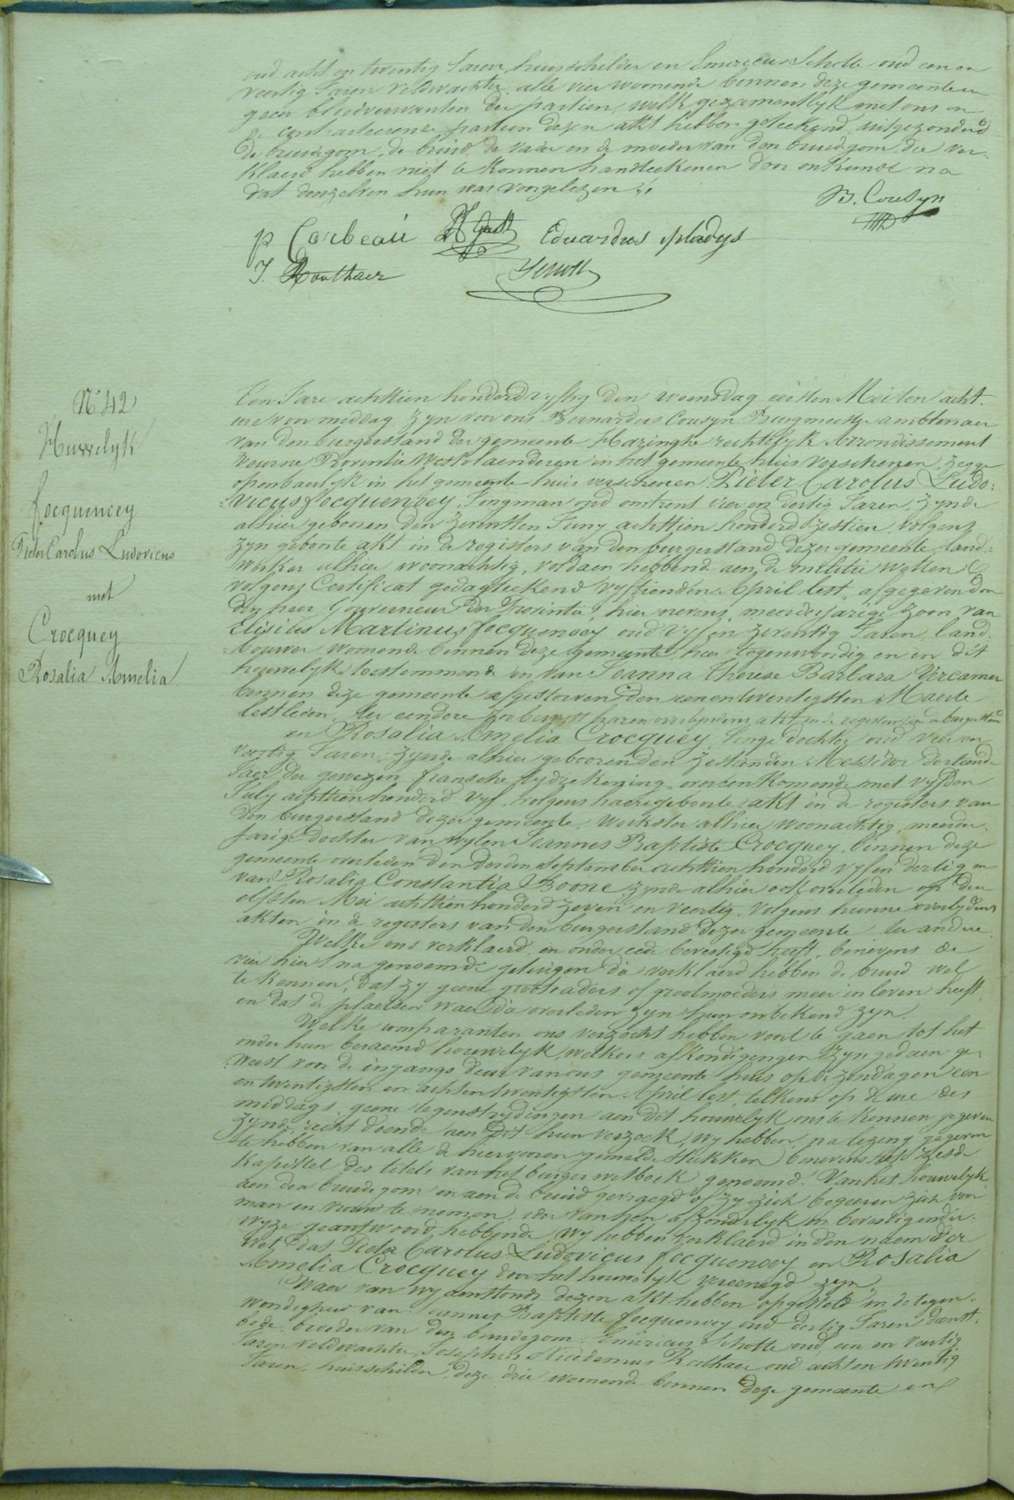 oud acht en twintig Jaren, huisschilder en Emericus Schotte oud een en
veertig Jaren veldwachter, alle vier woonende binnen deze gemeente en
geen bloedverwanten der partien, welk gezamentlyk met ons en
de contracteerende partien dezen akt hebben geteekend, uitgezonderd
de bruidegom, de bruid, de vader en de moeder van den bruidegom, die ver-
klaerd hebben niet te konnen handteekenen door onkunde na
dat denzelven hun was voorgelezen
B. Cousyn
P Corbeau Eduardus Mladys
J. Routhaer
N° 42
Huwelyk
Jocquencey
Pieter Carolus Ludovicus
met
Crocquey
Rosalia Amelia
Ten Jare achttien honderd vyftig den woensdag eersten Mei ten acht
ure voor middag zyn voor ons Bernardus Cousyn Burgmeester ambtenaer
van den burgerstand der gemeente Haringhe rechtelyk Arrondissement
Veurne Provintie Westvlaenderen in het gemeente huis verschenen, zegge
openbaerlyk in het gemeente huis verschenen Pieter Carolus Ludo-
vicus Jocquencey, Jongman oud omtrent vier en dertig Jaren, zynde
alhier geboren den Juny achttien honderd zestien, volgens
zyn geboorte akt in de registers van den burgerstand dezer gemeente, land-
werker alhier woonachtig, voldaen hebbende aen de militie wetten
volgens Certificat gedagteekend vyftienden April lest, afgegeven door
den heer Gouverneur der Provintie, hier nevens, meerderjarige zoon van
Elisius Martinus Jocquencey oud vyf en zeventig Jaren, land-
bouwer woonende binnen deze gemeente, hier tegenwoordig en in dit
huwelyk toestemmende en van Joanna Therese Barbara Vercamer
binnen deze gemeente afgestorven den een en twentigsten Maerte
lestleden, ter eendere
en Rosalia Amelia Crocquey Jonge dochter oud vier en
veertig Jaren, zynde alhier geboren den zestienden Messidor dertiende
Jaer der gewezen fransche tydrekening overeenkomende met vyfden
July achttien honderd vyf, volgens haere geboorte akt in de registers van
den burgerstand dezer gemeente, werkster alhier woonachtig, meerder-
jarige dochter van wylen Joannes Baptiste Crocquey, binnen deze
gemeente overleden den derden September achttien honderd vyf en dertig en
van Rosalia Constantia Boone zynde alhier ook overleden op den
elfsten Mei achttien honderd zeven en veertig, volgens hunne overlydens
akten in de registers van den burgerstand dezer gemeente ter andere.
Welke ons verklaerd en onder eed bevestigd heeft, benevens de
vier hier na genoemde getuigen die verklaerd hebben de bruid wel
te kennen, dat zy geene grootvaders of grootmoeders meer in leven heeft,
en dat de plaetsen waer die overleden zyn hun onbekend zyn.
Welke comparanten ons verzocht hebben voort te gaen tot het
onder hun beraemd houwelyk, welkers afkondigingen zyn gedaen ge-
weest voor de ingangs deur van ons gemeente huis op de zondagen een
en twintigsten en achtentwintigsten April lest, telkens op d'ure des
middags, geene tegenstrydingen aen dit houwelyk ons te kennen gegeven
zynde recht doende aen dit hun verzoek, wy hebben, na lezing gegeven
te hebben van alle de hiervoren gemelde stukken benevens het zesde
kapittel des titels van het burger wetboek genoemd Van het houwelyk
aen den bruidegom en aen de bruid gevraegd of zy zich begeeren zich voor
man en vrouw te nemen, ider van hen afzonderlyk en bevestigender
wyze geantwoord hebbende, wy hebben verklaerd in den naem der
Wet, dat Pieter Carolus Ludovicus Jocquencey en Rosalia
Amelia Crocquey door het houwelyk vereenigd zyn,
Waer van wy aenstonds dezen akt hebben opgesteld in de tegen-
woordigheid van Joannes Baptiste Jocquencey oud dertig Jaren dienst-
bode, broeder van den bruidegom, Emericus Schotte oud een en veertig
Jaren veldwachter, Josephus Nicodemus Routhaer oud acht en twintig
Jaren, huisschilder, deze drie woonende binnen deze gemeente en